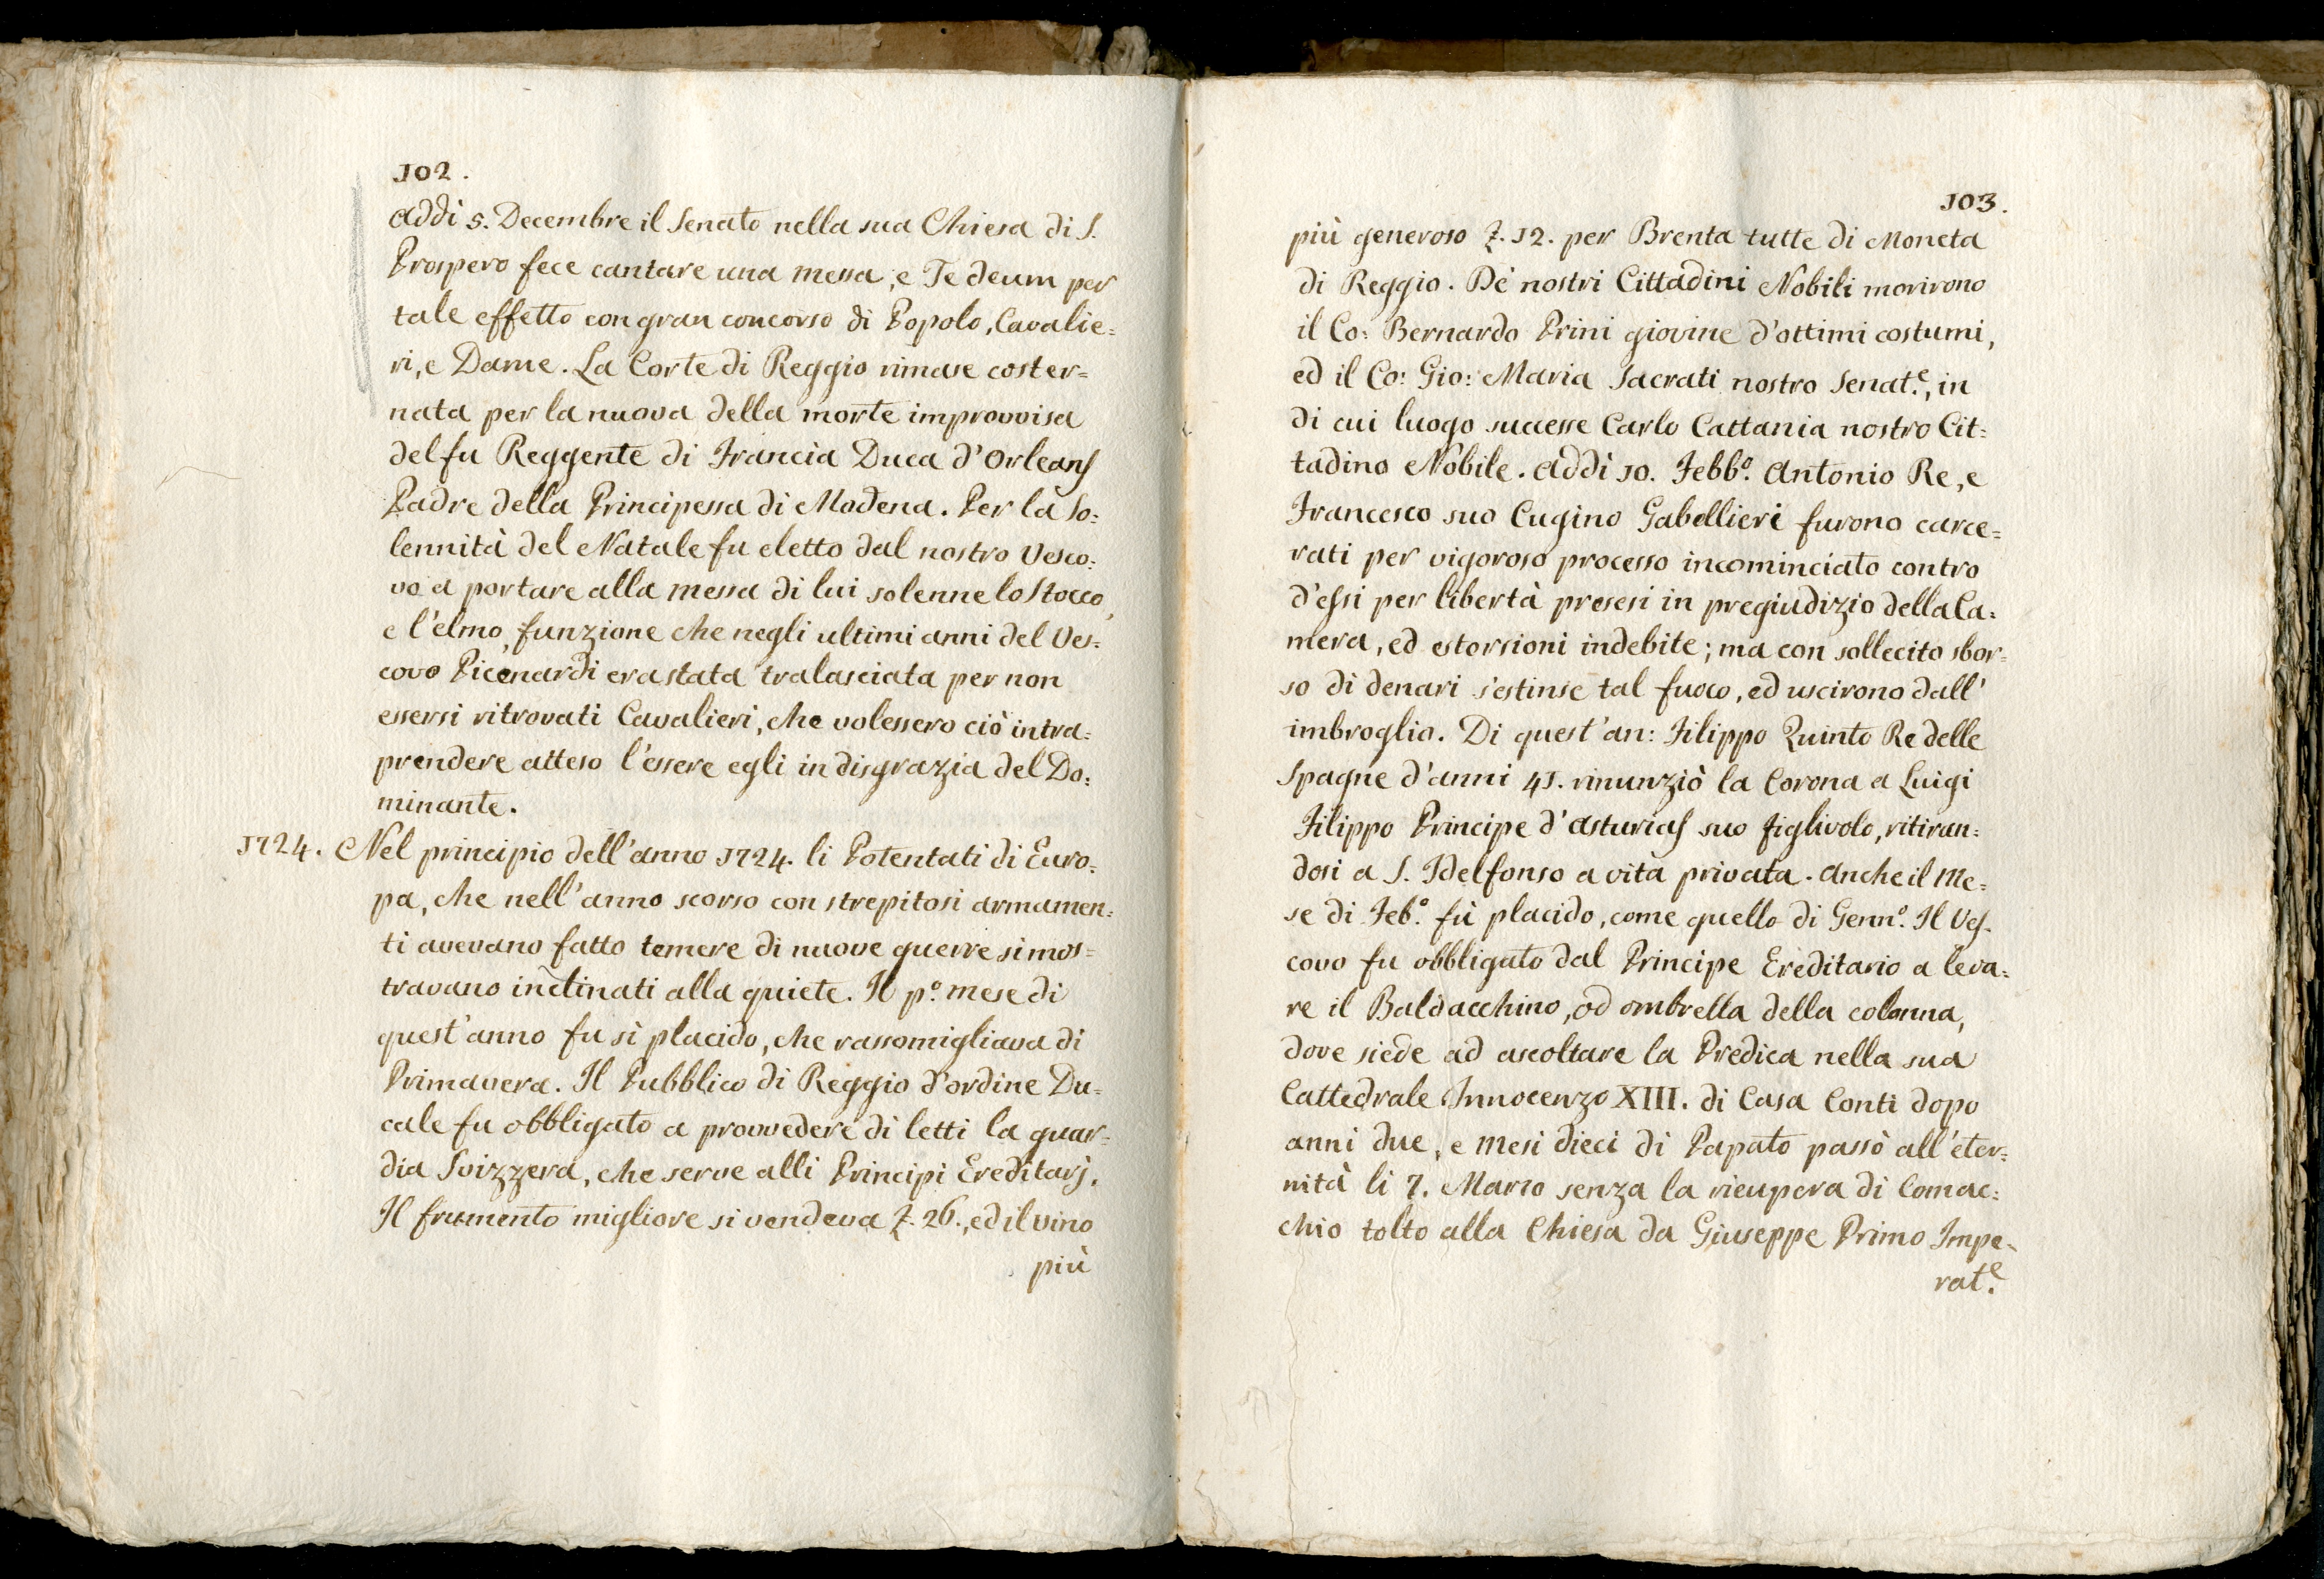 102.
Addì 5. Decembre il Senato nella sua Chiesa di S.
Prospero fece cantare una messa, e Te deum per
tale effetto con gran concorso di Popolo, Cavalie=
ri, e Dame. La Corte di Reggio rimase coster=
nata per la nuova della morte improvvisa
del fu Reggente di Francia Duca d'Orleans
Padre della Principessa di Modena. Per la So=
lennità del Natale fu eletto dal nostro Vesco=
vo a portare alla messa di lui solenne lo Stocco,
e l'elmo, funzione che negli ultimi anni del Ves=
covo Picenardi era stata tralasciata per non
essersi ritrovati Cavalieri, che volessero ciò intra=
prendere atteso l'essere egli in disgrazia del Do=
minante.
1724. Nel principio dell'anno 1724. li Potentati di Euro=
pa, che nell'anno scorso con strepitosi armamen=
ti avevano fatto temere di nuove guerre si mos=
travano inclinati alla quiete. Il p.º mese di
quest'anno fu sì placido, che rassomigliava di
Primavera. Il Pubblico di Reggio d'ordine Du=
cale fu obbligato a provvedere di letti la guar=
dia Svizzera, che serve alli Principi Ereditarj.
Il frumento migliore si vendeva £. 26., ed il vino
più
103.
più generoso £. 12. per Brenta tutte di Moneta
di Reggio. De' nostri Cittadini Nobili morirono
il Co: Bernardo Prini giovine d'ottimi costumi,
ed il Co: Gio: Maria Sacrati nostro Senat.e, in
di cui luogo successe Carlo Cattania nostro Cit=
tadino Nobile. Addì 10. Febb.º Antonio Re, e
Francesco suo Cugino Gabellieri furono carce=
rati per vigoroso processo incominciato contro
d'essi per libertà presesi in pregiudizio della Ca=
mera, ed estorsioni indebite; ma con sollecito sbor=
so di denari s'estinse tal fuoco, ed uscirono dall'
imbroglio. Di quest'an: Filippo Quinto Re delle
Spagne d'anni 41. rinunziò la Corona a Luigi
Filippo Principe d'Asturias suo figlivolo, ritiran=
dosi a S. Idelfonso a vita privata. Anche il Me=
se di Feb.º fù placido, come quello di Genn.º Il Ves=
covo fu obbligato dal Principe Ereditario a leva=
re il Baldacchino, od ombrella della colonna,
dove siede ad ascoltare la Predica nella sua
Cattedrale Innocenzo XIII. di Casa Conti dopo
anni due, e mesi dieci di Papato passò all'eter=
nità li 7. Marzo senza la ricupera di Comac=
chio tolto alla Chiesa da Giuseppe Primo Impe=
rat.e